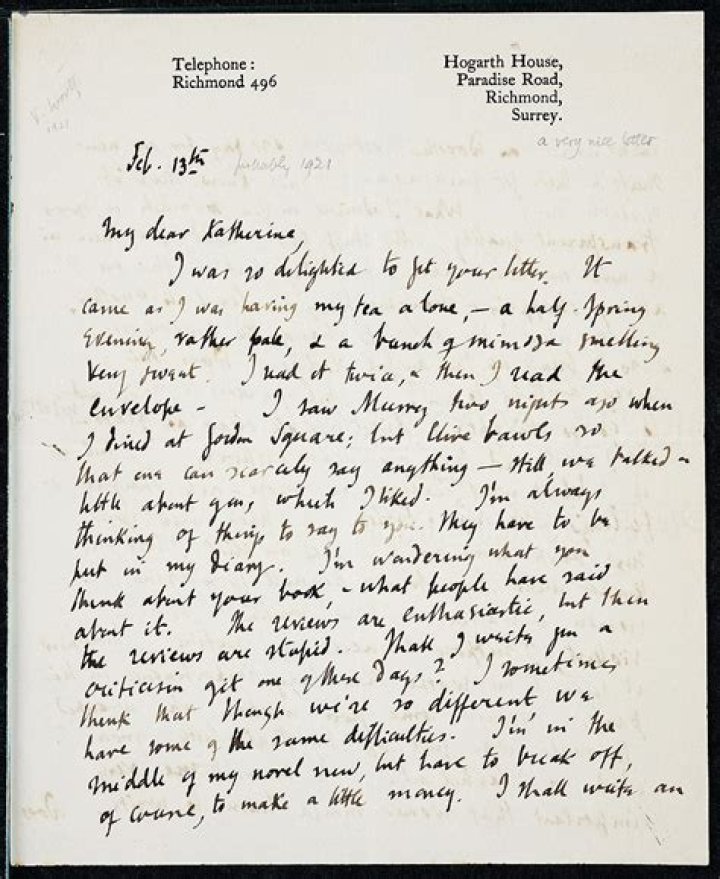 Telephone:
Richmond 496
Hogarth House,
Paradise Road,
Richmond,
Surrey.
a very nice letter
Feb. 13th probably 1921
My dear Katherine,
I was so delighted to get your letter. It
came as I was having my tea alone, — a half-spring
evening, rather pale, & a bunch of mimosa smelling
very sweet. I read it twice, & then I read the
envelope - I saw Murry two nights ago when
I dined at Gordon Square; but Clive bawls so
that one can scarcely say anything — still we talked a
little about you, which I liked. I'm always
thinking of things to say to you. They have to be
put in my diary. I'm wondering what you
think about your book, & what people have said
about it. The reviews are enthusiastic, but then
the reviews are stupid. Shall I write you a
criticism of it one of these days? I sometimes
think that though we're so different we
have some of the same difficulties. I'm in the
middle of my novel now, but have to break off,
of course, to make a little money. I shall write an